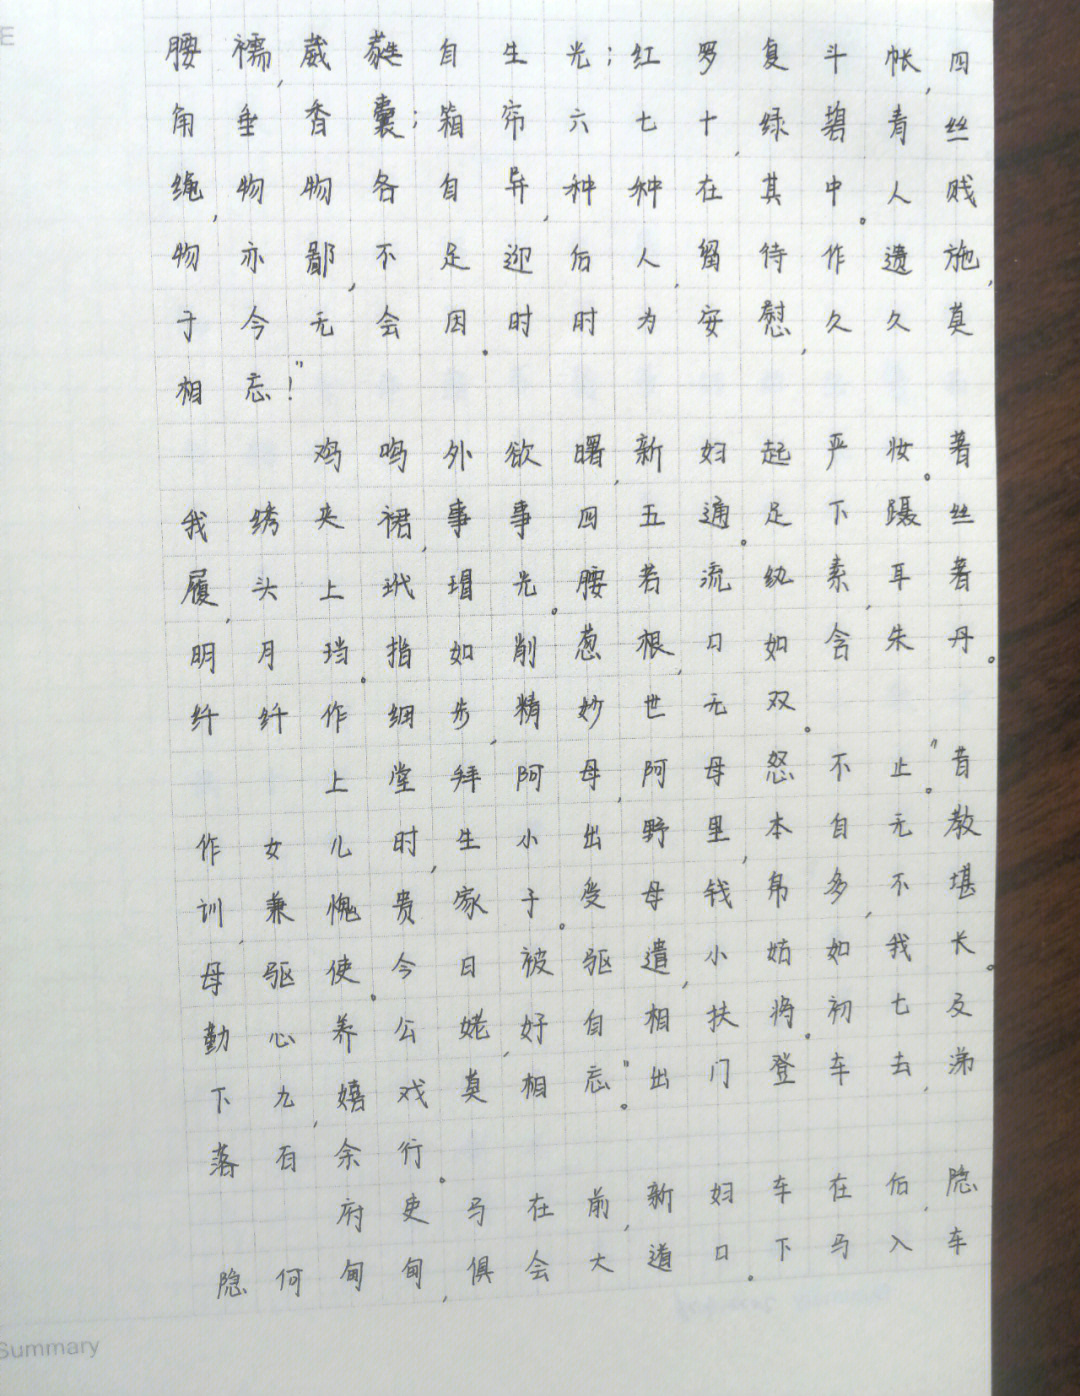 E
腰襦,葳蕤自生光;红罗复斗帐,四
角垂香囊;箱帘六七十,绿碧青丝
绳,物物各自异,种种在其中。人贱
物亦鄙,不足迎后人,留待作遗施,
于今无会因。时时为安慰,久久莫
相忘!”
鸡鸣外欲曙,新妇起严妆。著
我绣夹裙,事事四五通。足下蹑丝
履,头上玳瑁光。腰若流纨素,耳著
明月珰。指如削葱根,口如含朱丹。
纤纤作细步,精妙世无双。
上堂拜阿母,阿母怒不止。“昔
作女儿时,生小出野里,本自无教
训,兼愧贵家子。受母钱帛多,不堪
母驱使。今日被驱遣,小姑如我长。
勤心养公姥,好自相扶将。初七及
下九,嬉戏莫相忘。”出门登车去,涕
落百余行。
府吏马在前,新妇车在后,隐
隐何甸甸,俱会大道口。下马入车
Summary